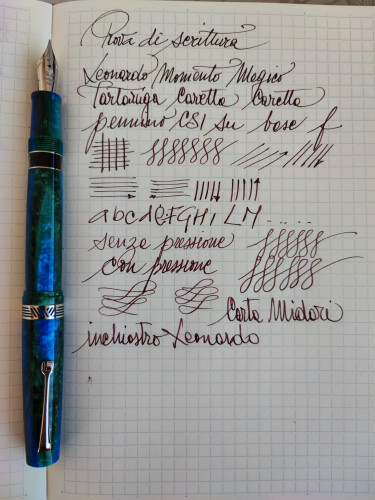 Prova di scrittura
Leonardo Momento Magico
Tartaruga Caretta Caretta
pennino CSI su base f
abcdeFGHI LM.....
senza pressione
con pressione
Carta Midori
inchiostro Leonardo